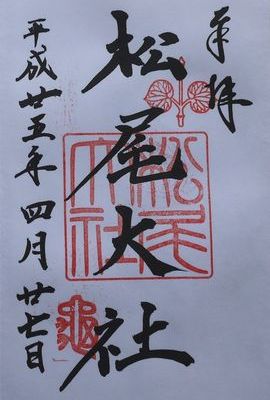 奉拝
松尾大社
松尾大社
平成廿五年四月廿七日